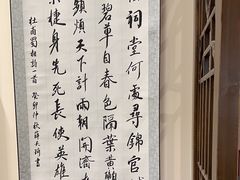 祠堂何處尋錦官
碧草自春色隔葉黃鸝
顧頻煩天下計兩朝開濟
捷身先死長使英雄
杜甫蜀相詩一首 癸卯仲秋 天 書